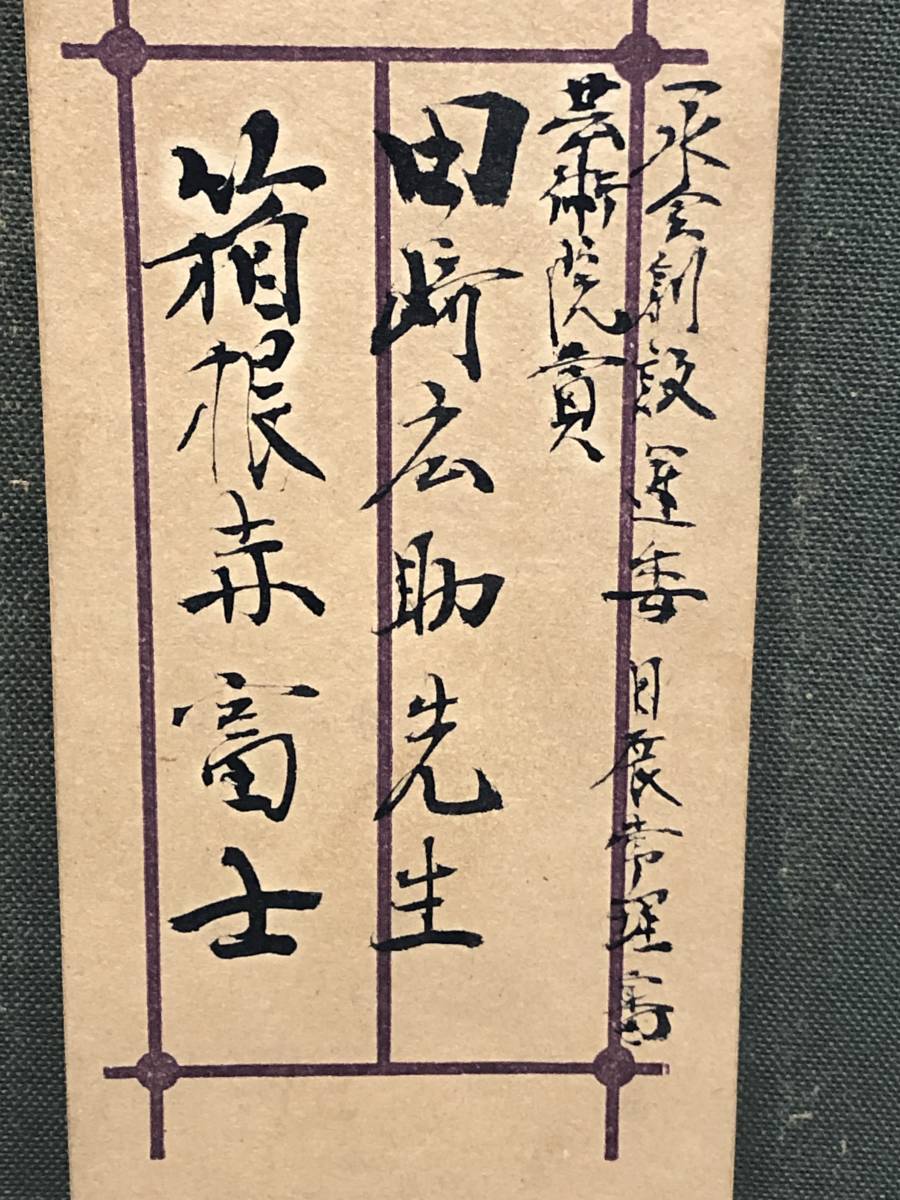 一水会創設運委日展常理審
芸術院賞
田崎広助先生
箱根赤富士